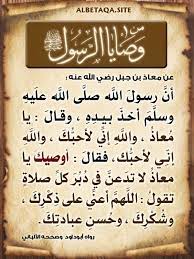 ALBETAQA.SITE
وصايا الرسول ﷺ
عن معاذ بن جبل رضي الله عنه :
أن رسول الله صلى الله عليه
وسلم أخذ بيده ، وقال : يا
معاذ ، والله إني لأحبك ، والله
إني لأحبك ، فقال : أوصيك يا
معاذ لا تدعن في دبر كل صلاة
تقول : اللهم أعني على ذكرك ،
وشكرك ، وحسن عبادتك .
رواه أبوداود وصححه الألباني